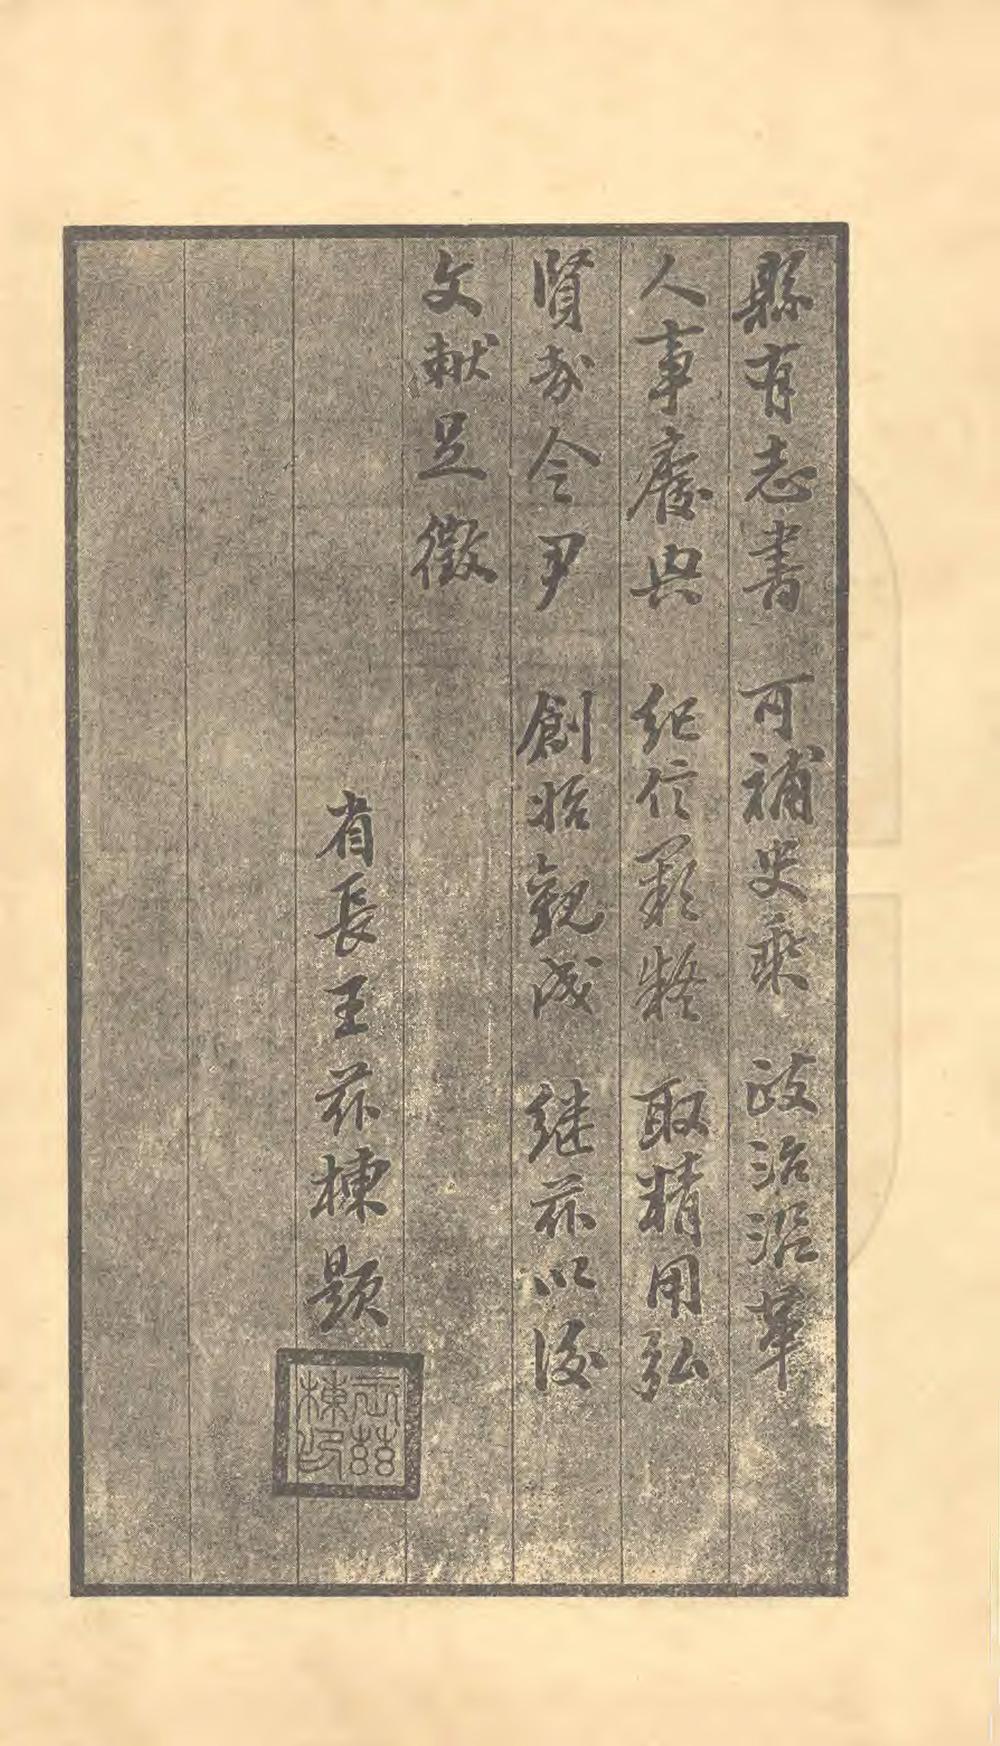 縣有志書 可補史乘 政治沿革
人事廢興 紀信 疑 取精用弘
賢哉令尹 創始觀成 继茲以後
文獻足徵
省長王茲棟題
王茲棟印